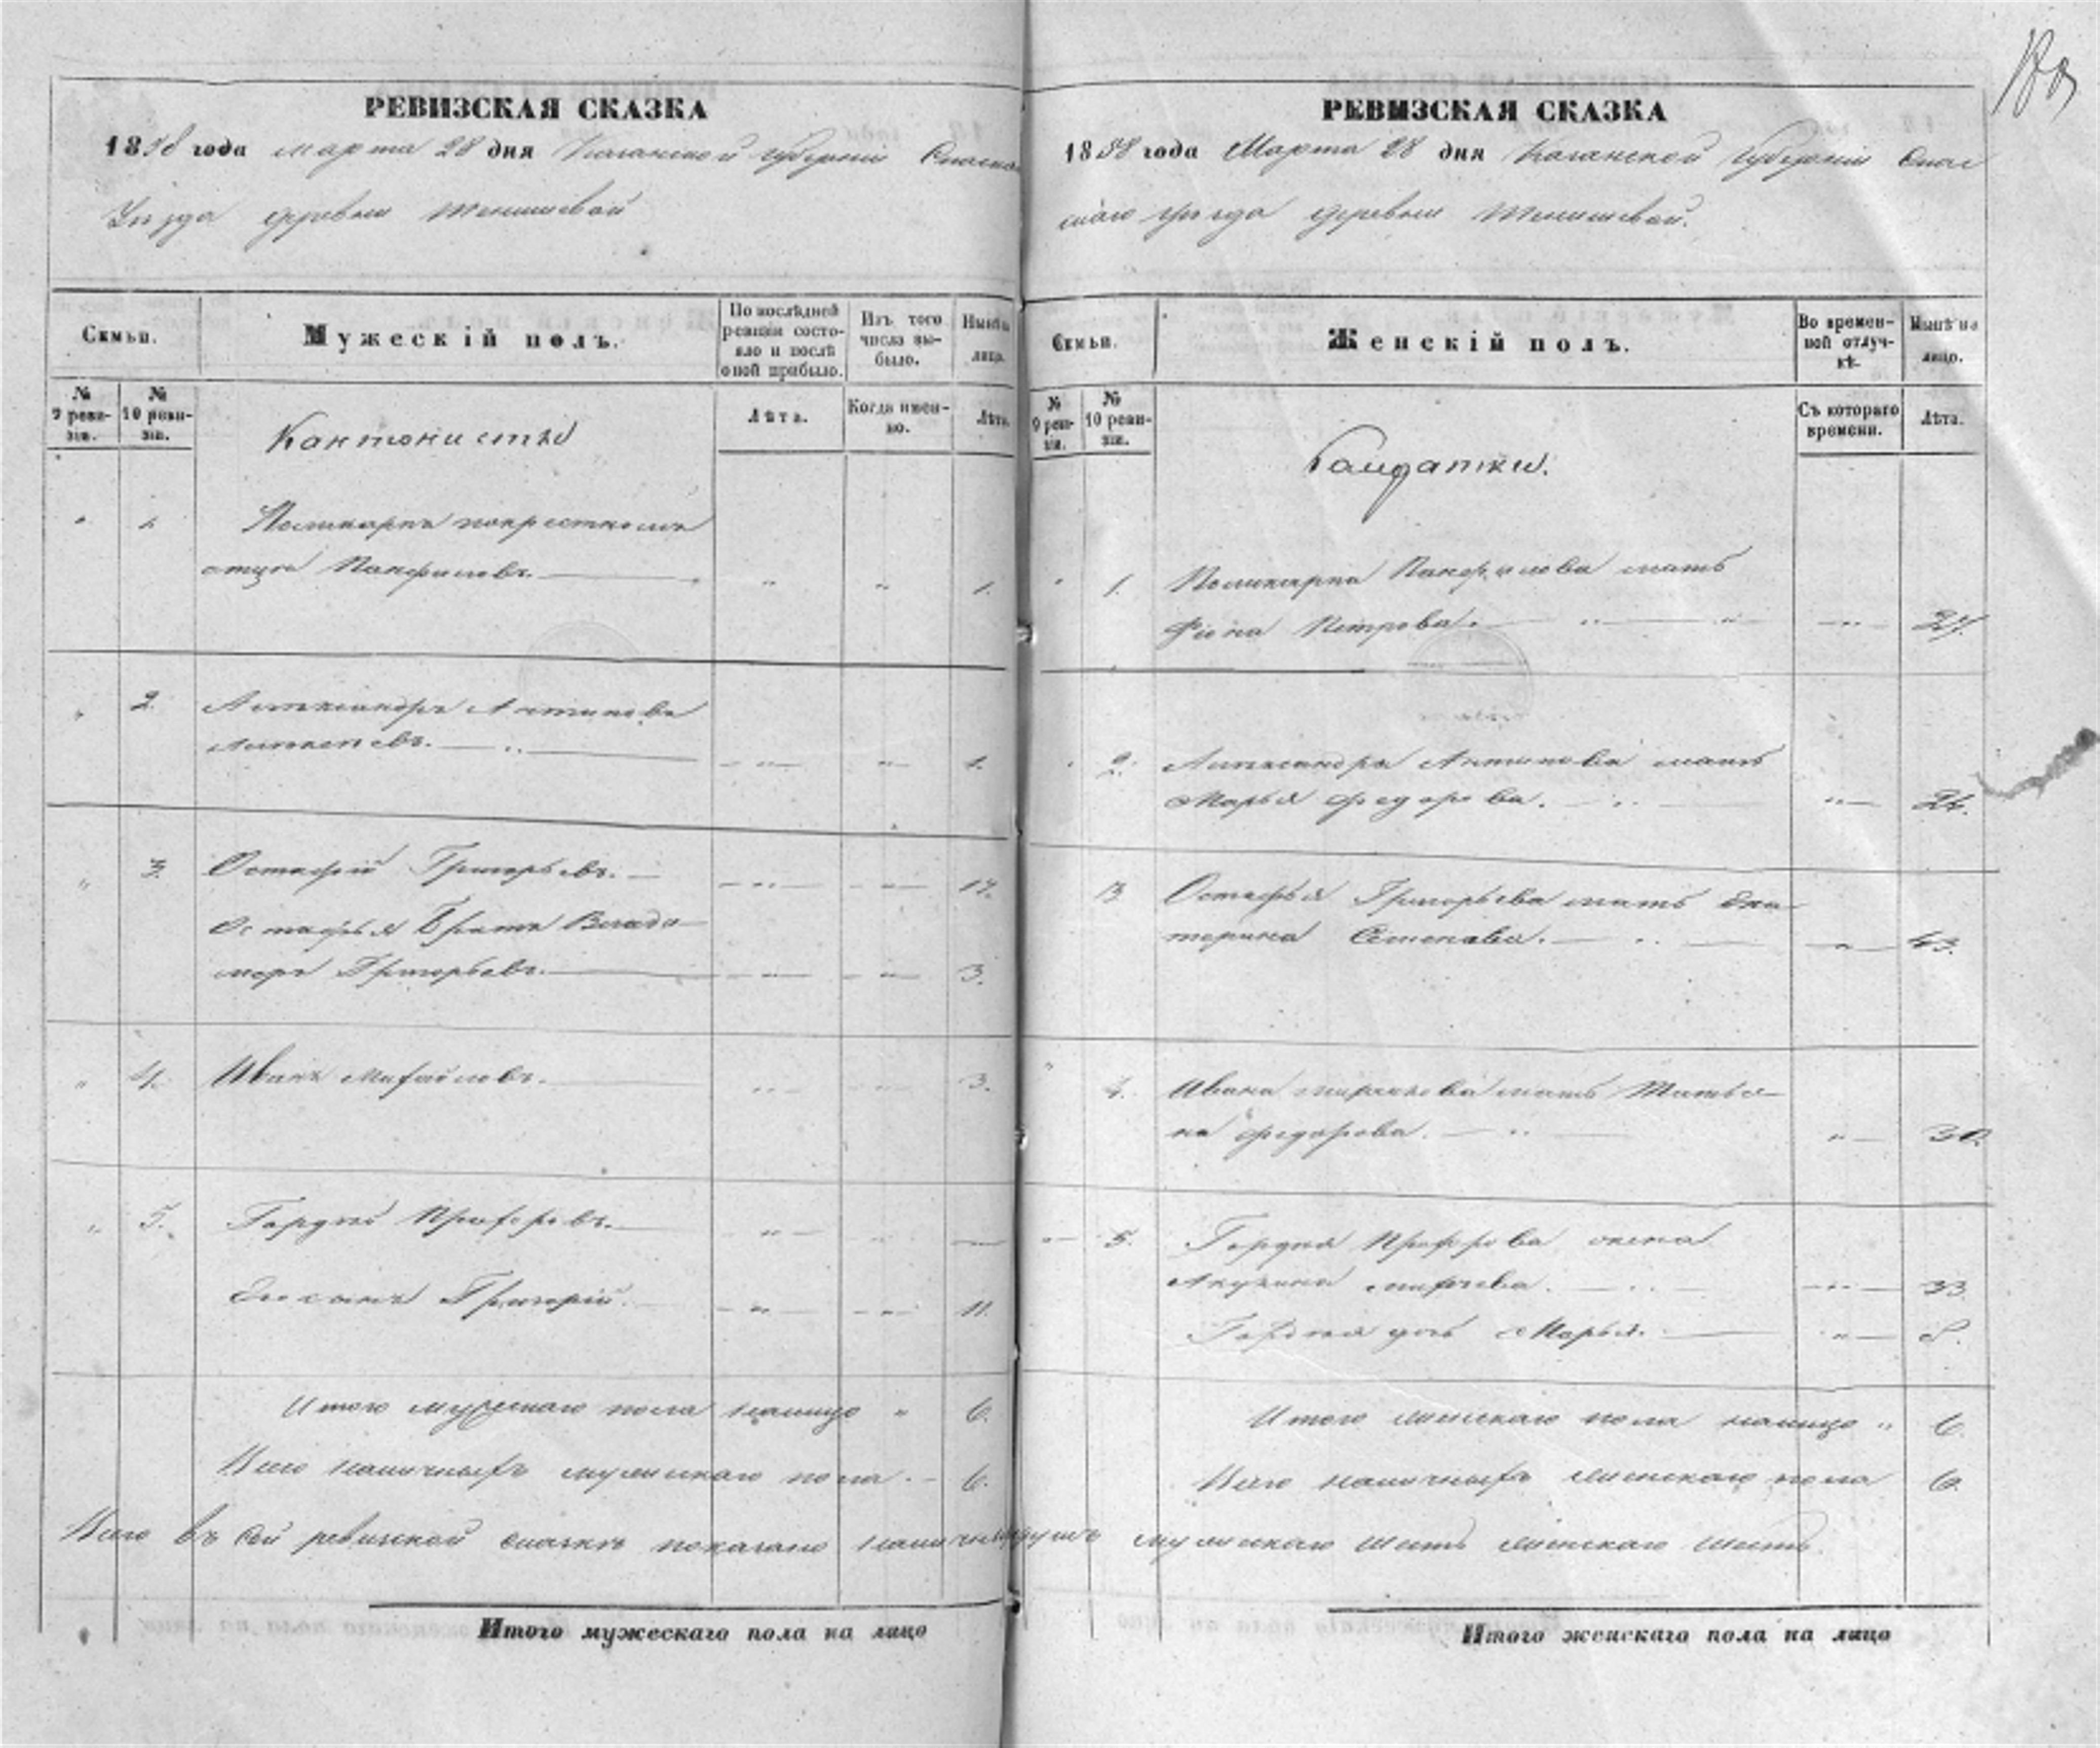 РЕВИЗСКАЯ СКАЗКА
1858 года марта 28 дня Казанской губернии Спаска
Уѣзда деревни Тенишевой
Семьи.
Мужескій полъ.
По послѣдней ревизіи состояло и послѣ оной прибыло.
Изъ того числа выбыло.
Нынѣ на лицо.
№ 9 ревизіи.
№ 10 ревизіи.
Лѣта.
Когда именно.
Лѣта.
Кантонисты
" 1. Поликарпъ покрестному
отцу Панфиловъ. " " 1.
" 2. Александръ Антипова
" " 1.
" 3. Остафій Григорьевъ. " " 17.
Остафья Братъ
Григорьевъ. " " 3.
" 4. Иванъ Михайловъ. " " 3.
" 5. Гордей Прохоровъ. "
Его сынъ Григорій. " " 11.
Итого мужескаго пола налицо " 6.
Всего наличныхъ мужескаго пола. 6.
Всего въ сей ревизской сказкѣ показано наличныхъ душъ мужескаго шесть женскаго шесть.
Итого мужескаго пола на лицо
РЕВИЗСКАЯ СКАЗКА
1858 года Марта 28 дня Казанской Губерніи Спас
скаго уѣзда деревни Тенишевой.
Семьи.
Женскій полъ.
Во временной отлучкѣ.
Нынѣ на лицо.
№ 9 ревизіи.
№ 10 ревизіи.
Съ котораго времени.
Лѣта.
Салдатки.
" 1. Поликарпа Панфилова мать
Фіона Петрова. " 27.
" 2. Александра Антипова мать
Марья Федорова. " 26.
3. Остафья Григорьева мать Ека
терина Степанова. " 43.
" 4. Ивана Михайлова мать Татья
на Федорова. " 30.
" 5. Гордея Прохорова жена
Акулина " 33.
Гордея дочь Марья. " 8.
Итого женскаго пола налицо " 6.
Всего наличныхъ женскаго пола 6.
Итого женскаго пола на лицо